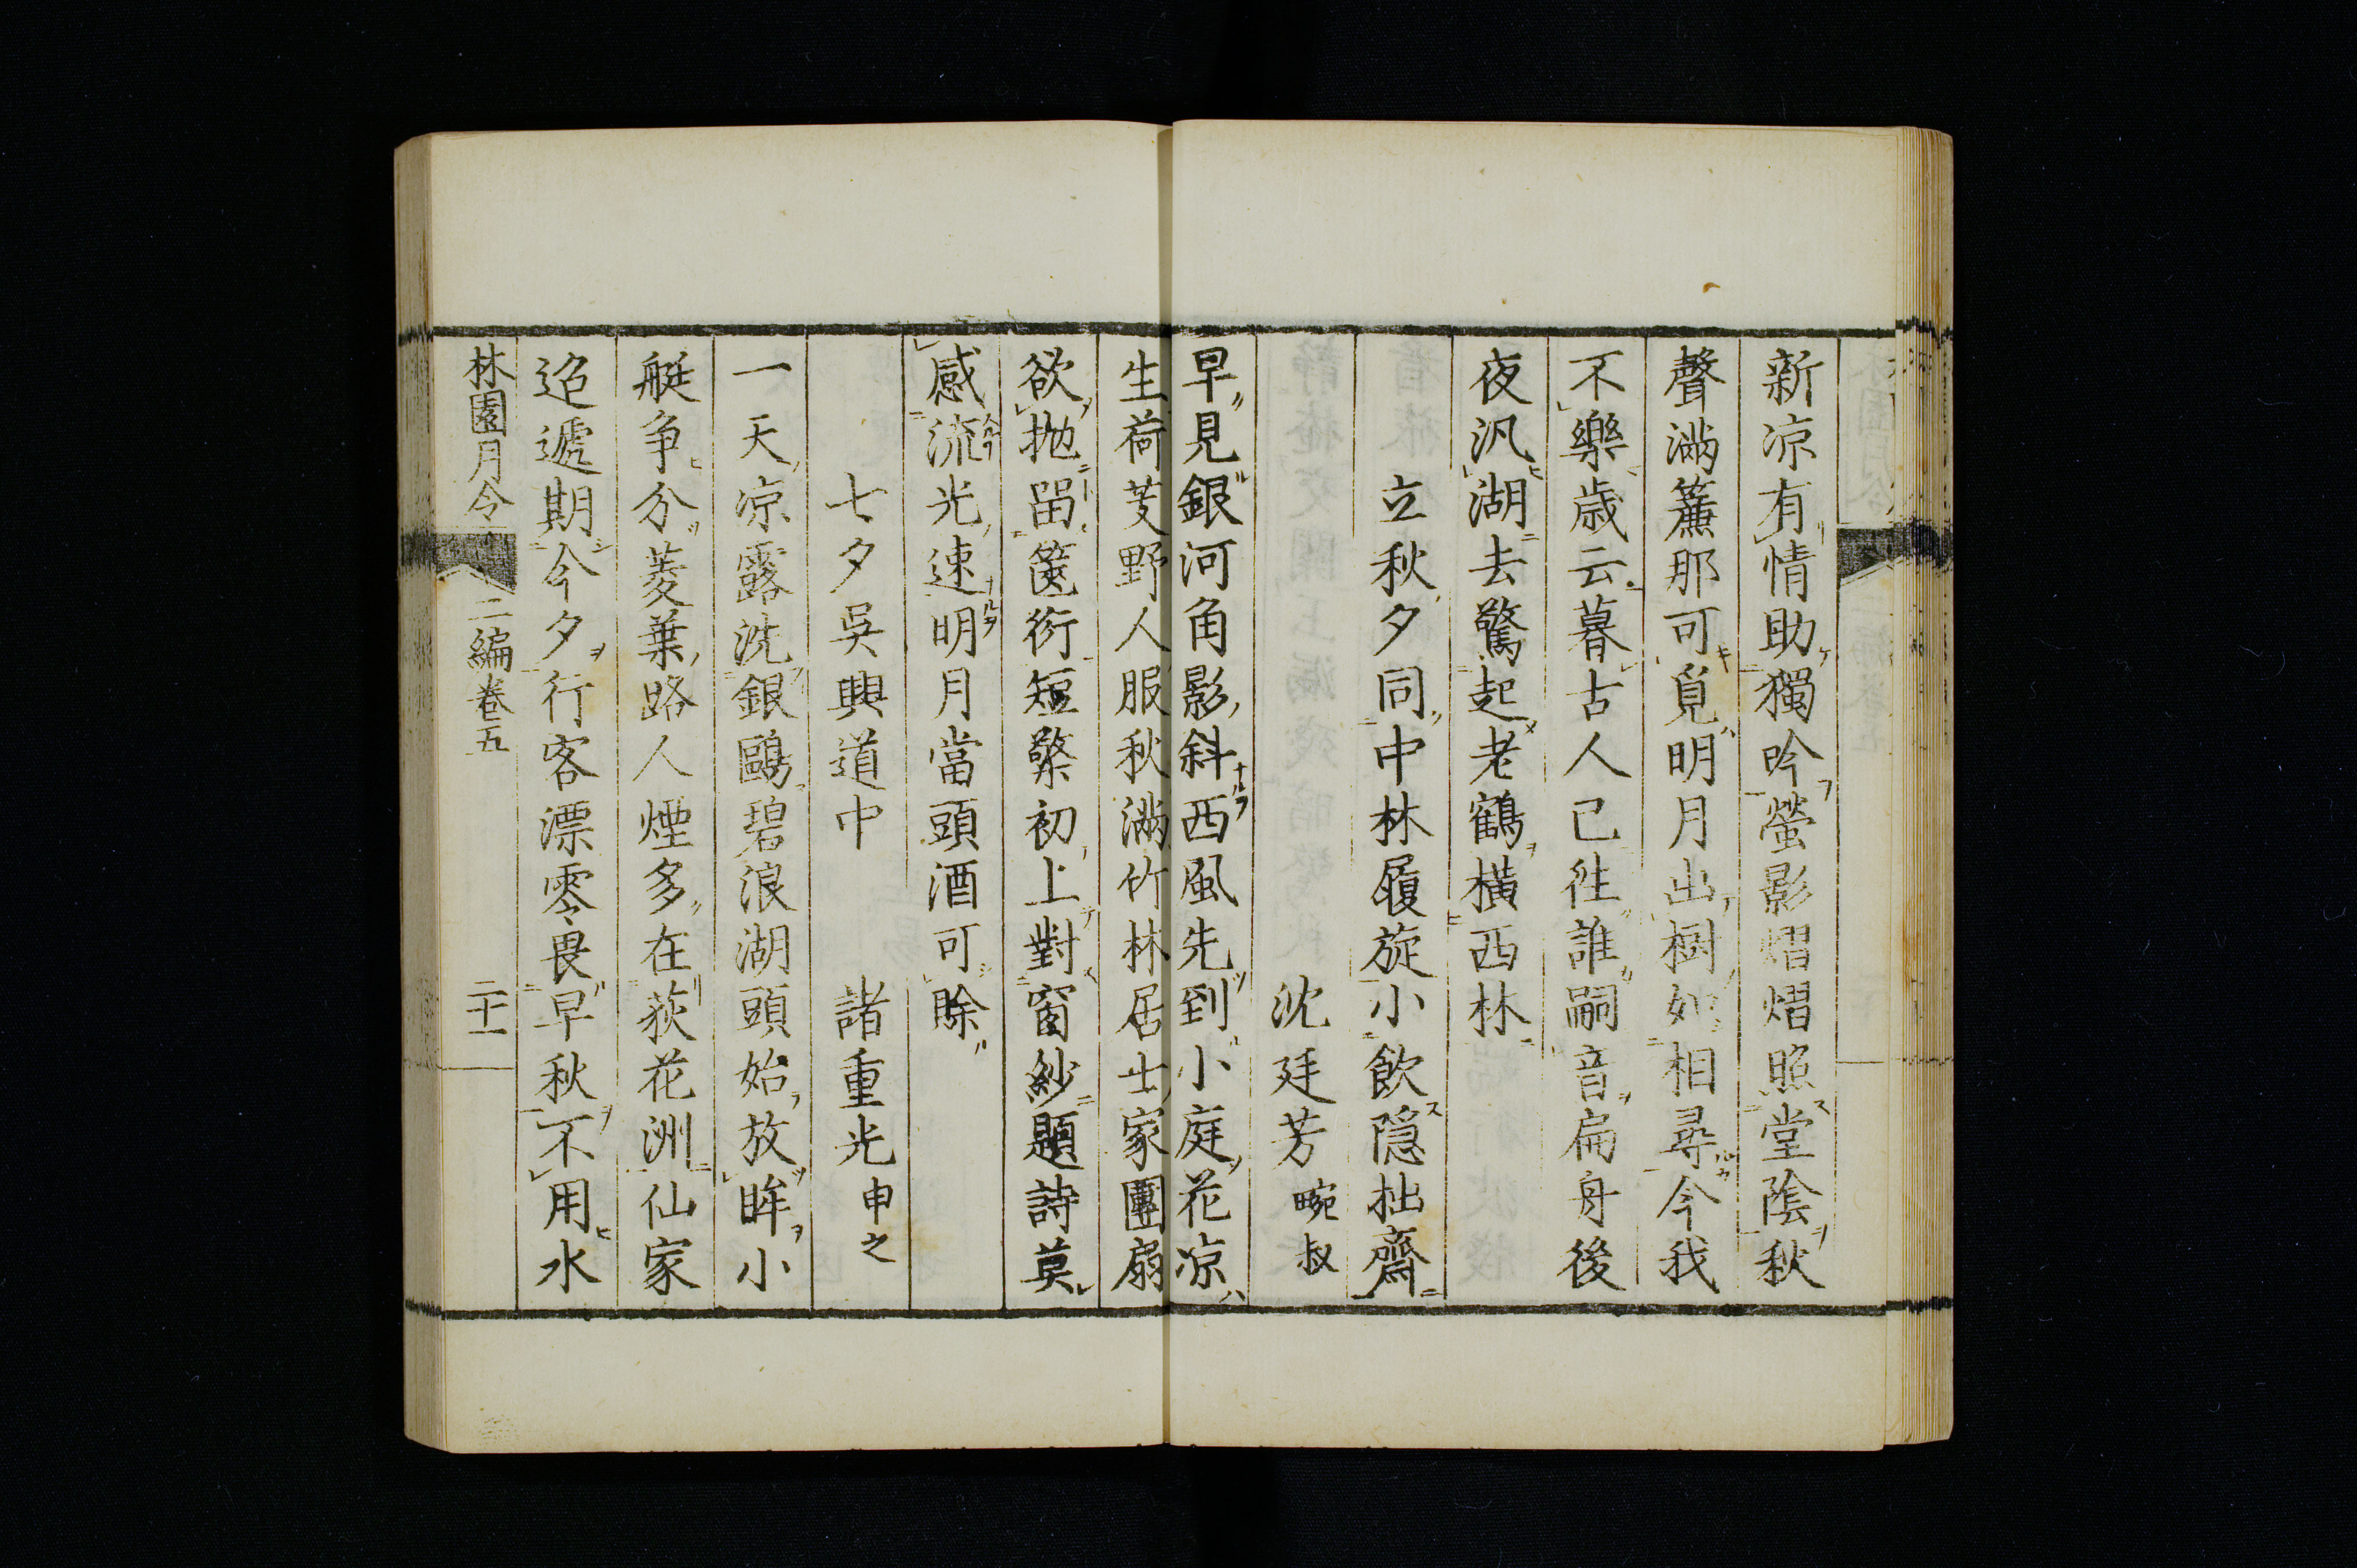 新凉有情助獨吟螢影熠熠照堂陰秋
聲滿簾那可覓明月出樹如相尋今我
不樂歳云暮古人已往誰嗣音扁舟後
夜汎湖去驚起老鶴橫西林
立秋夕同中林履旋小飲隠拙齋
沈廷芳 畹叔
早見銀河角影斜西風先到小庭花凉
生荷芰野人服秋滿竹林居士家團扇
欲抛留篋衍短檠初上對窗紗題詩莫
感流光速明月當頭酒可賒
七夕吳興道中 諸重光 申之
一天凉露洗銀鷗碧浪湖頭始放眸小
艇争分菱葉路人煙多在荻花洲仙家
迢遞期今夕行客漂零畏早秋不用水
林園月令 二編卷五 二十一